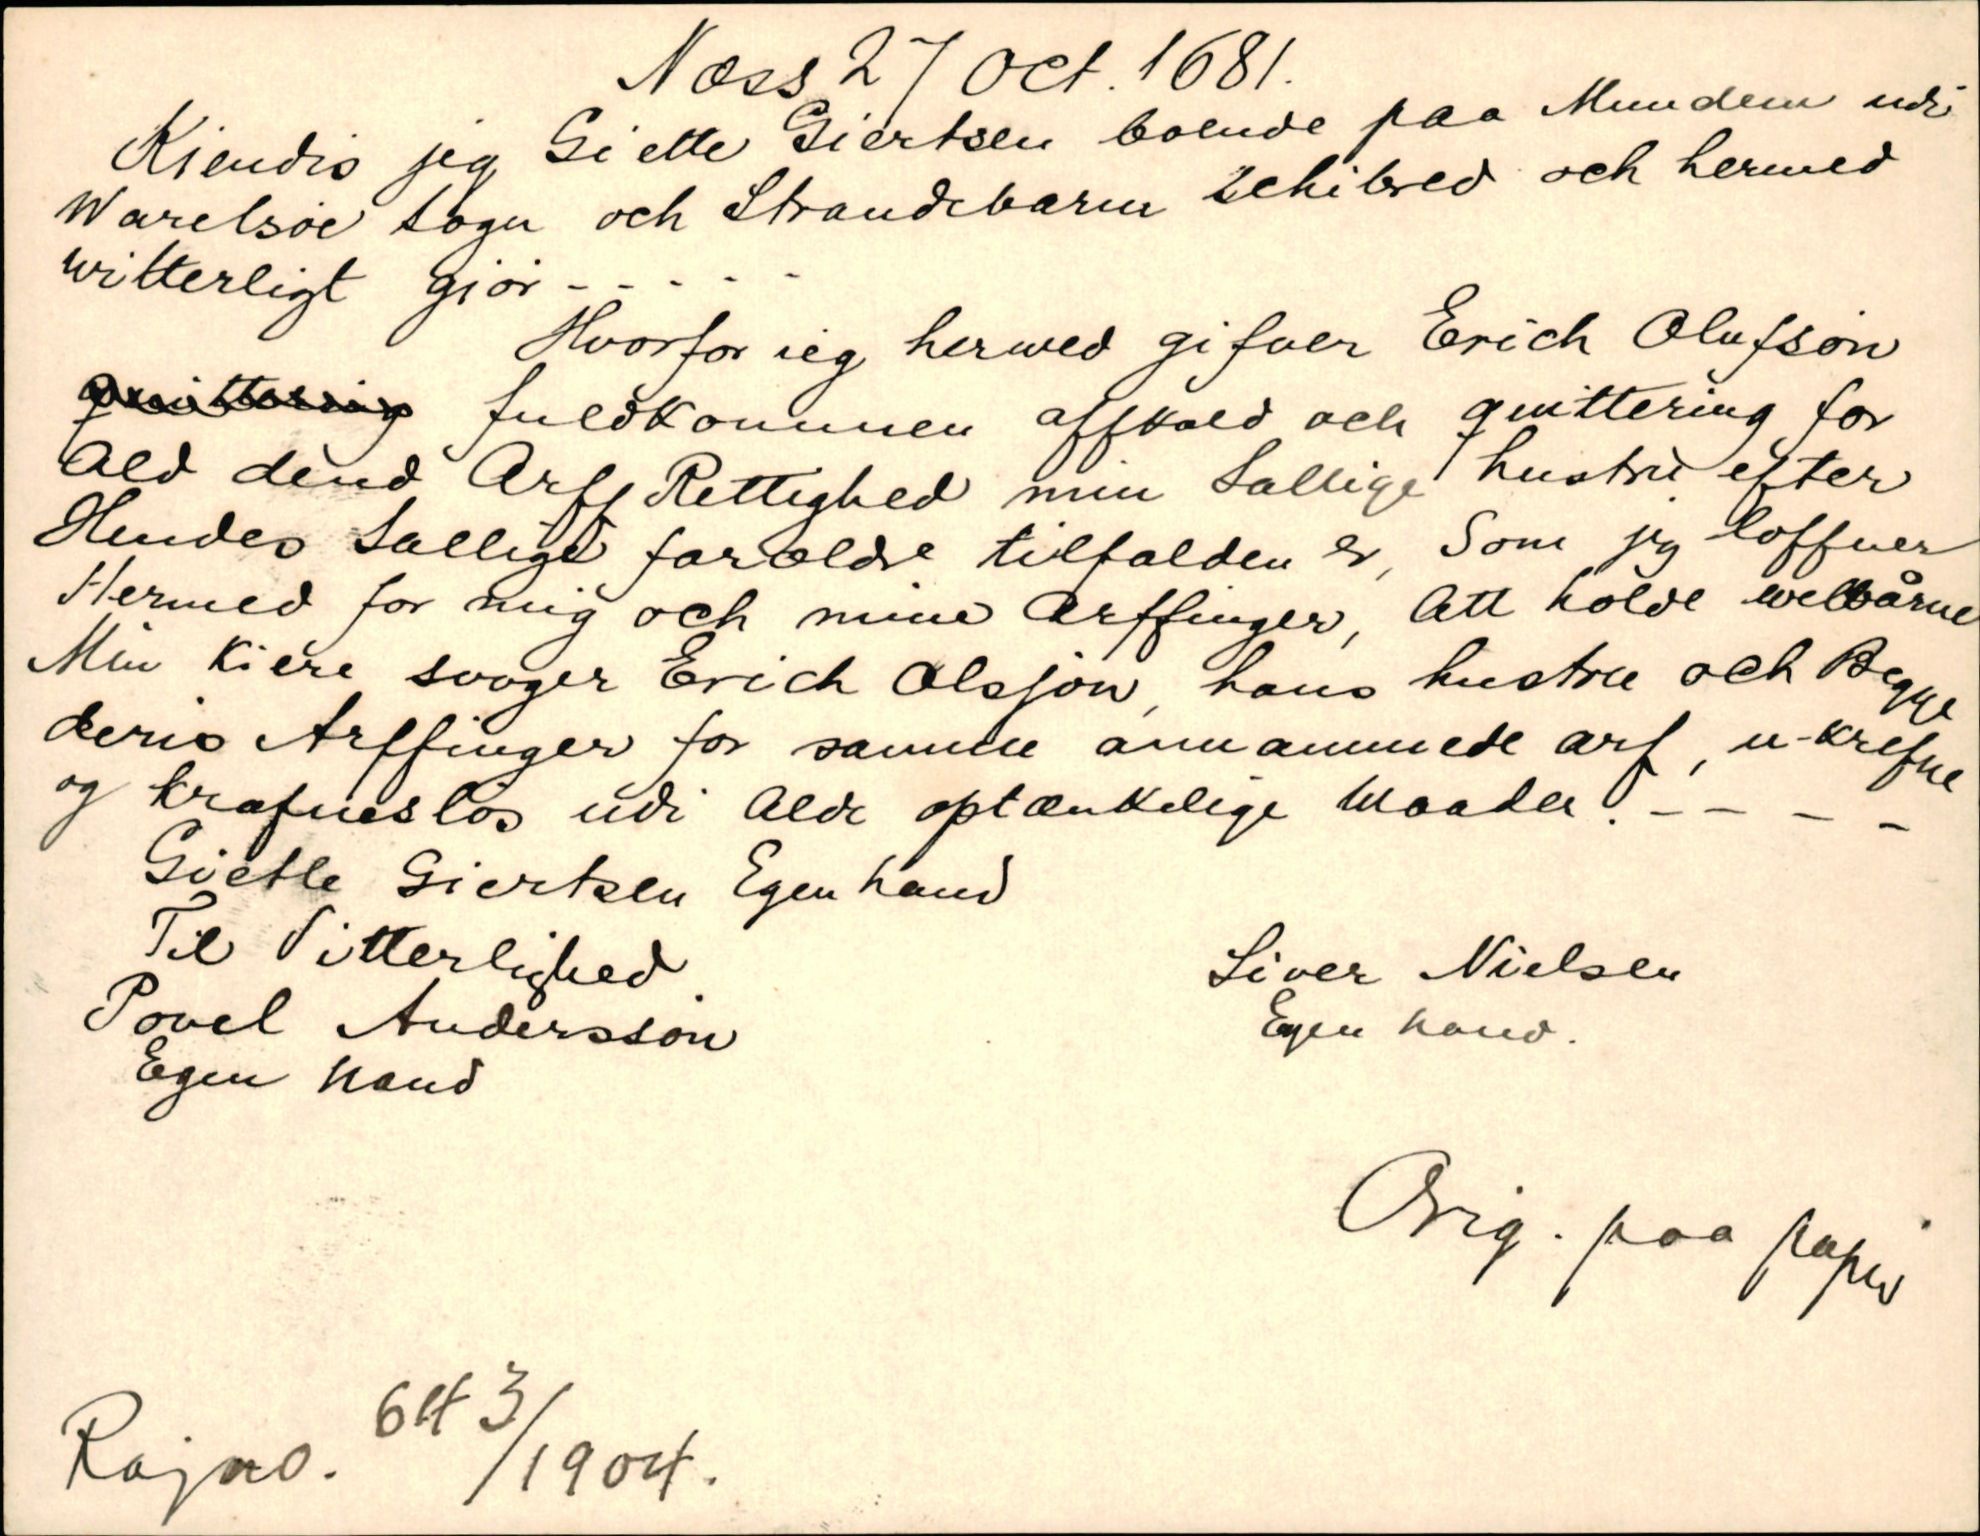 Næss 27 Oct. 1681.
Kiendis jeg Giette Giertsen boende paa Mundem udi
Warelsöe sogn och Strandebarm schibred och hermed
witterligt giör - - - - -
Hvorfor ieg hermed gifuer Erich Olufsön
quittering fuldkommen affkald och quittering for
Ald dend Arff Rettighed min Sallige hustru efter
Hendes Sallige forældre tilfalden er, Som jeg loffuer
Hermed for mig och mine Arffinger, Att holde welbårne
Min Kiere svoger Erich Olsjön, hans hustru och Begge
deris Arffinger for samme annammede arf, u-krefue
og krafueslös udi Alde optænkelige Maader. - - - -
Giette Giertsen Egen hand
Til Vitterlighed
Siver Nielsen
Povel Anderssön
Egen hand.
Egen hand
Orig. paa papir
Rajno. 643/1904.